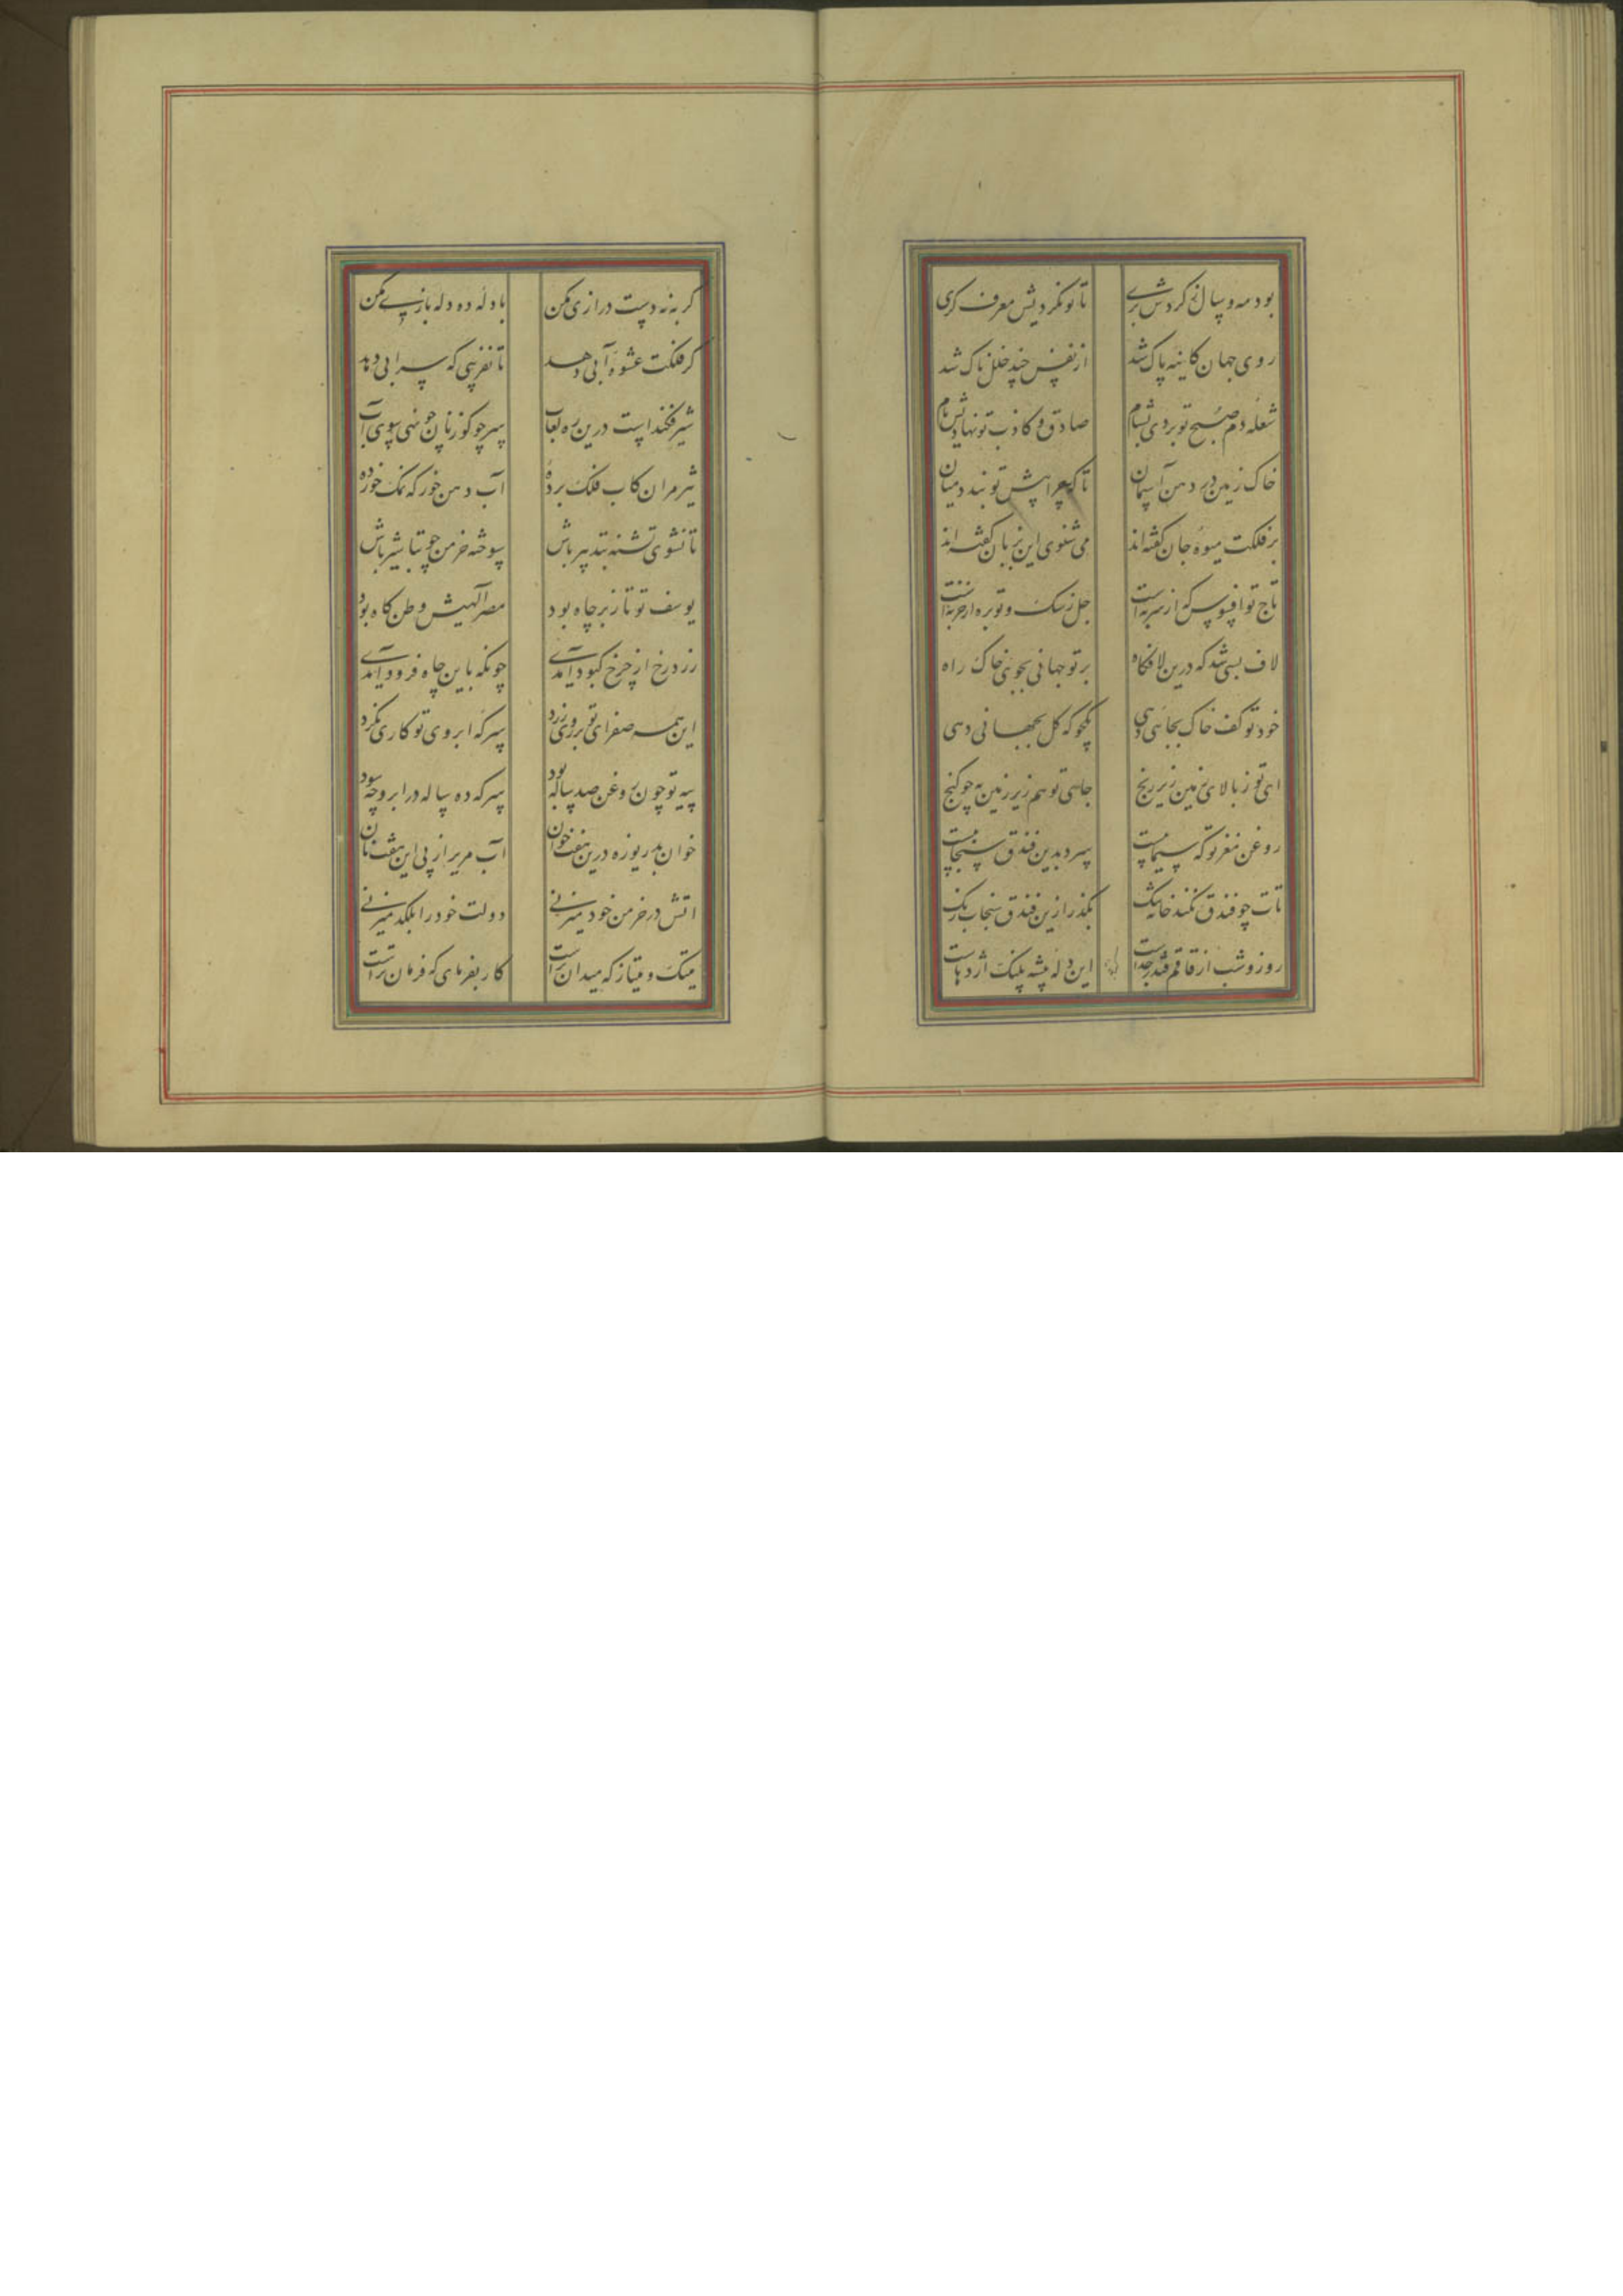 بود مه و سال ز گردش بری تا تو نکردیش معرف کری
روی جهان کاینه پاک شد از نفس چند خلل ناک شد
شعله دم صبح تو بردی بشام صادق و کاذب تو نهادیش نام
خاک زمین در دهن آسمان تا که چرا پیش تو بندد میان
بر فلکت میوه جان گفته‌اند می شنوی این بزبان گفته‌اند
تاج تو افسوس که از سر بهست جل ز سگ و توبره از خر بهست
لاف بسی شد که درین لافگاه بر تو جهانی بجوی خاک راه
خود تو کف خاک بجایی دهی نکو که کل بجهانی دهی
ای تو ز بالای زمین زیر رنج جای تو هم زیر زمین به چو گنج
روغن مغز تو که سیمابیست سرد بدین فندق سنجابیست
تات چو فندق نکند خانه تنگ بگذر ازین فندق سنجاب رنگ
روز و شب از قاقم قندز جداست این دله پیشه پلنگ اژدهاست
گربه نه دست درازی مکن با دله ده دله بازی مکن
گر فلکت عشوه آبی دهد تا نفریبی که سرابی دهد
شیر فکندست درین ره لعاب سر چو گوزنان چو نهی سوی آب
تیز مران کاب فلک برده آب دهن خور که نمک خورده
تا نشوی تشنه بتدبیر باش سوخته خرمن چو تباشیر باش
یوسف تو تا ز بر چاه بود مصر الهیش وطن گاه بود
زرد رخ از چرخ کبود آمدی چونکه باین چاه فرود آمدی
این همه صفرای تو بر روی زرد سرکه ابروی تو کاری نکرد
پیه تو چون روغن صد ساله بود سرکه ده ساله در ابرو چه سود
خوان بدریوزه درین هفت خوان آب مریز از پی این هفت نان
آتش در خرمن خود میزنی دولت خود را بلکد میزنی
میتک و میتاز که میدان تراست کار بفرمای که فرمان تراست